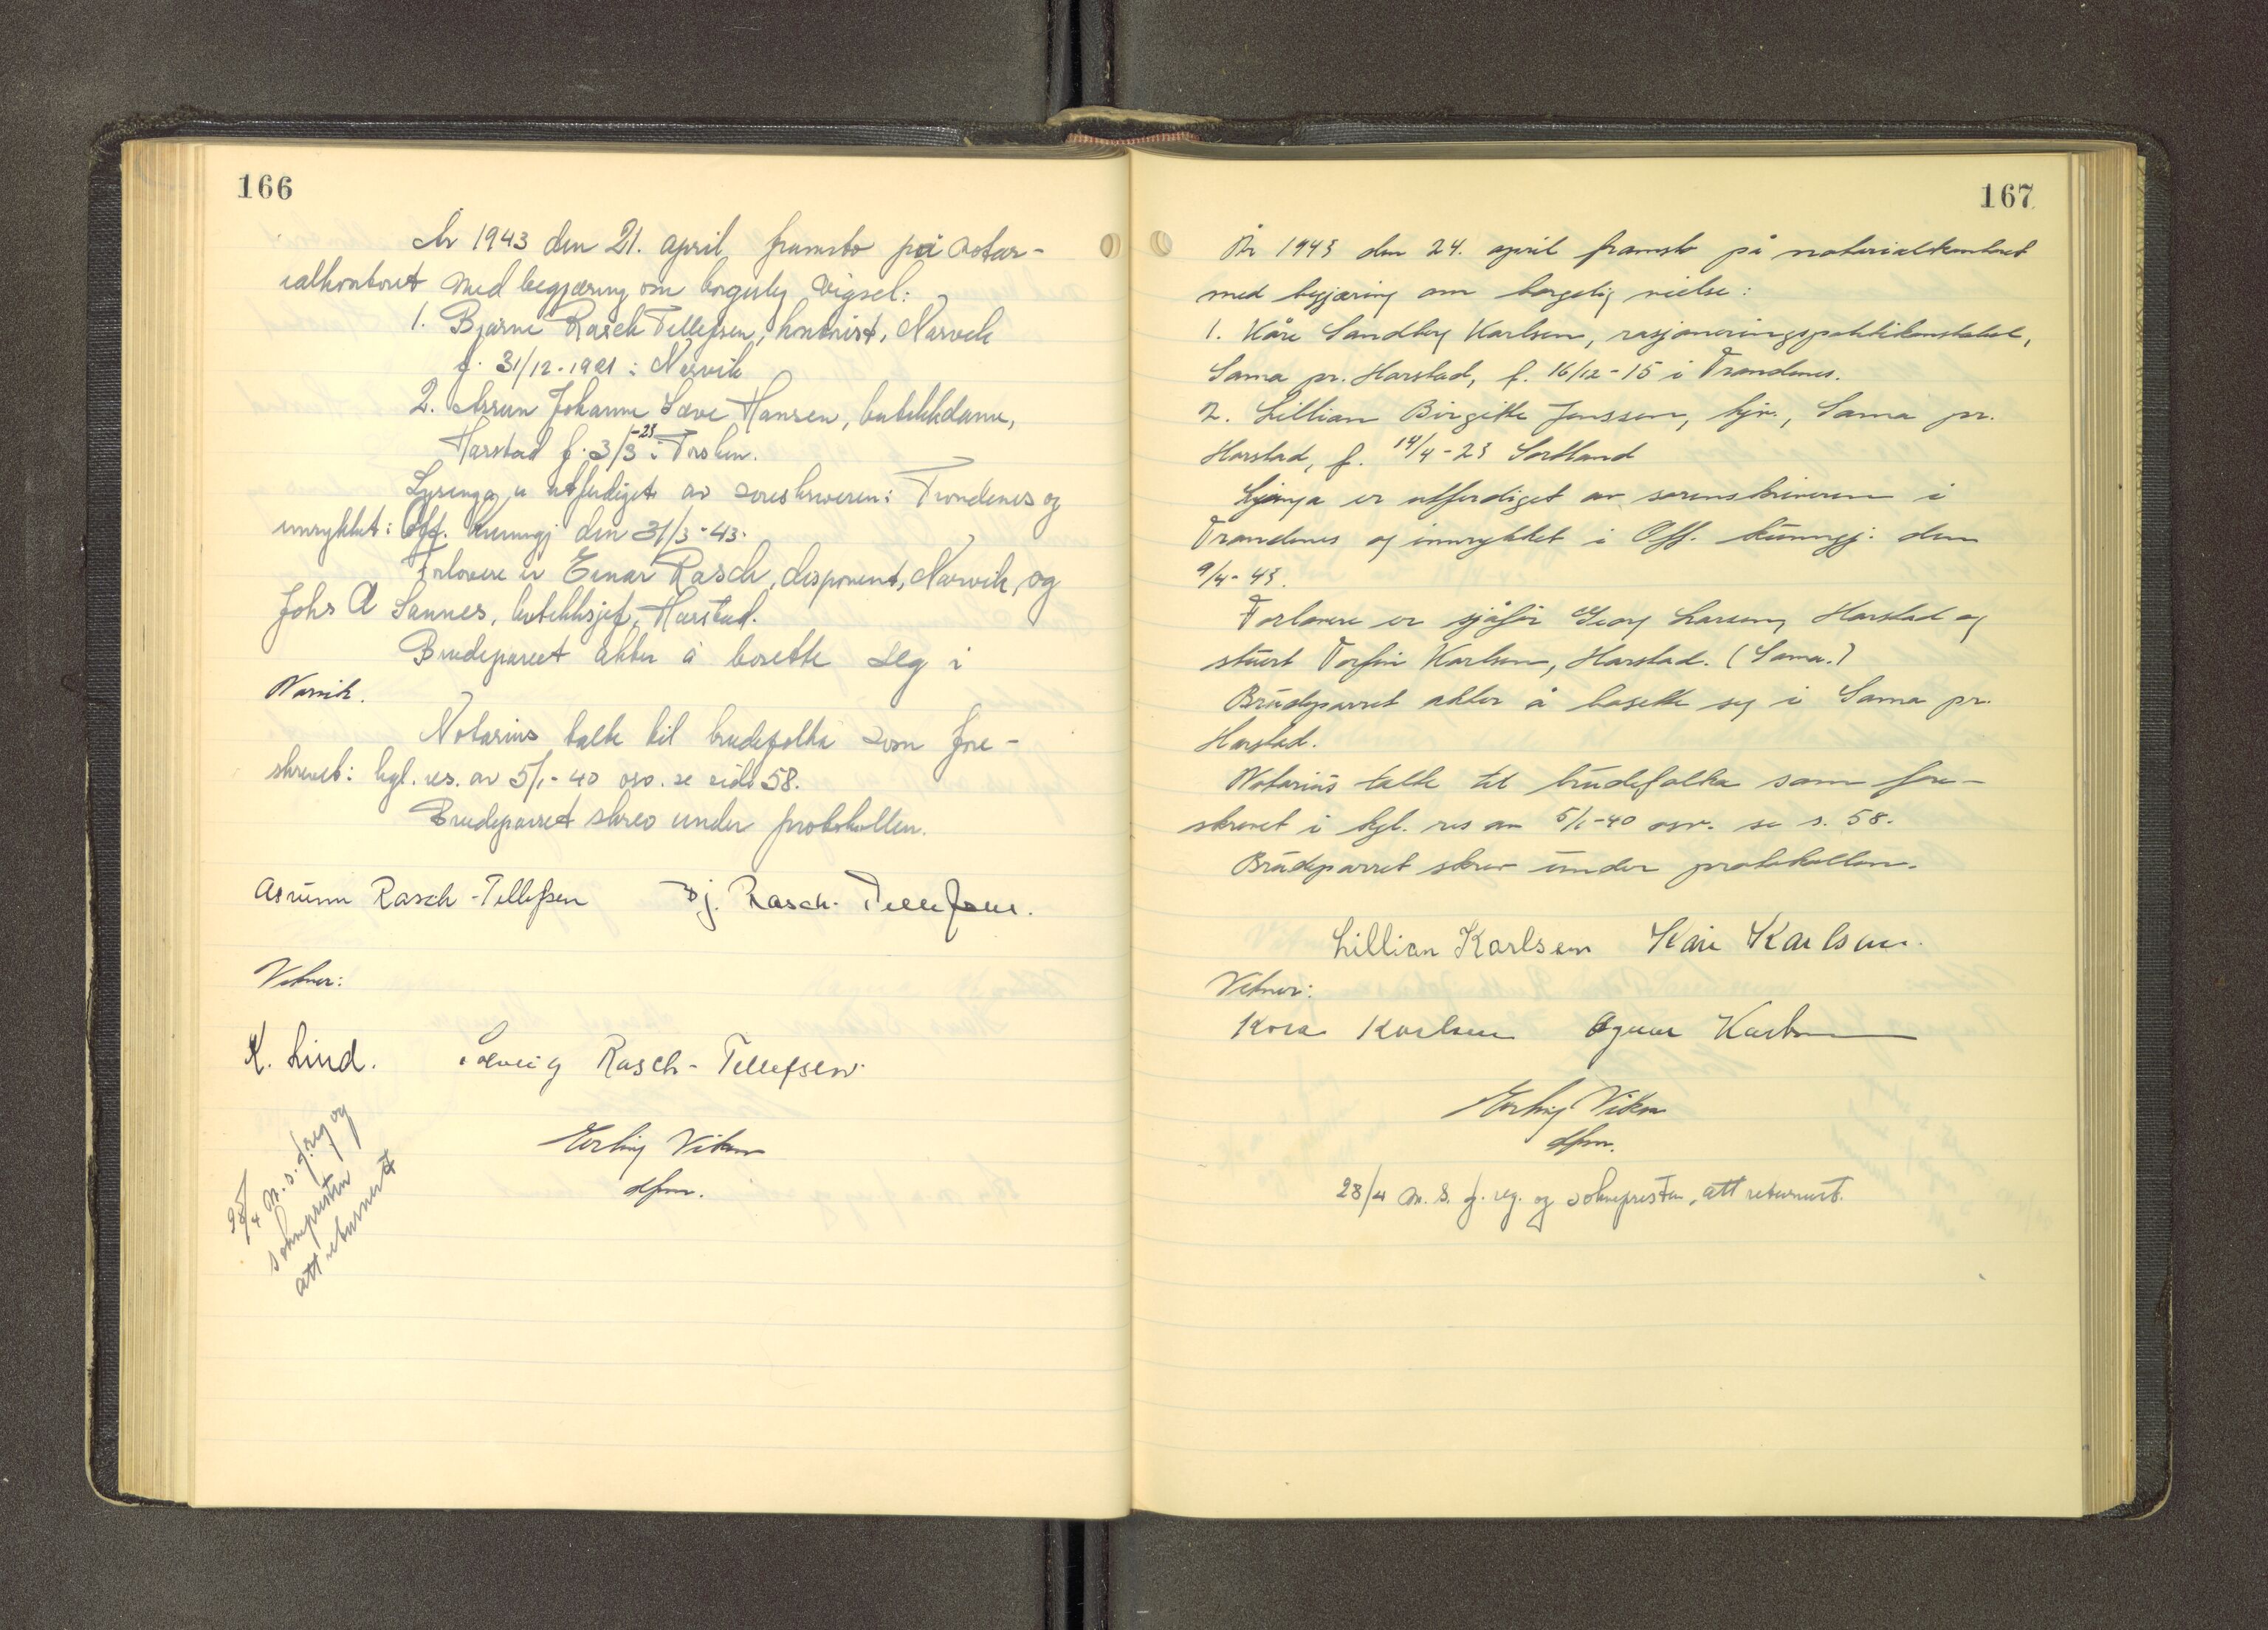 166
År 1943 den 21. april framsto på notar-
ialkontoret med begjæring om borgerlig vigsel:
1. Bjarne Rasch Tellefsen, kontorist, Narvik
f. 31/12-1921 i Narvik
2. Asrun Johanne Hansen, butikkdame,
Harstad f. 3/3-23 i Torsken.
Lysinga er utferdiget av sorenskriveren i Trondenes og
innrykket i Off. Kunngj den 31/3-43.
Forlovere er Einar Rasch, disponent, Narvik, og
Johs A Sannes, butikksjef, Harstad.
Brudeparet akter å bosette seg i
Narvik.
Notarius talte til brudefolka som fore-
skrevet i kgl. res. av 5/1-40 osv. se side 58.
Brudeparret skrev under protokollen.
Asrunn Rasch-Tellefsen Bj. Rasch-Tellefsen.
Vitner:
K. Lind. Solveig Rasch-Tellefsen
Erling Vikan
dfm.
28/4 m. s. f. reg og
soknepresten
att returnert
167
År 1943 den 24. april framsto på notarialkontoret
med begjæring om borgelig vielse:
1. Kåre Sandberg Karlsen,
Sama pr. Harstad, f. 16/12-15 i Trondenes.
2. Lillian Birgitte Jenssen, hjv., Sama pr.
Harstad, f. 14/4-23 Sortland
Lysinga er utferdiget av sorenskriveren i
Trondenes og innrykket i Off. kunngj. den
9/4-43.
Forlovere er sjåfør Georg Larsen, Harstad og
stuert Torfin Karlsen, Harstad. (Sama.)
Brudeparret akter å bosette seg i Sama pr.
Harstad.
Notarius talte til brudefolka som fore-
skrevet i kgl. res av 5/1-40 osv. se s. 58.
Brudeparret skrev under protokollen.
Lillian Karlsen Kåre Karlsen.
Vitner:
Kora Karlsen Karlsen
Erling Vikan
dfm.
28/4 m. s. f. reg. og soknepresten, att returnert.